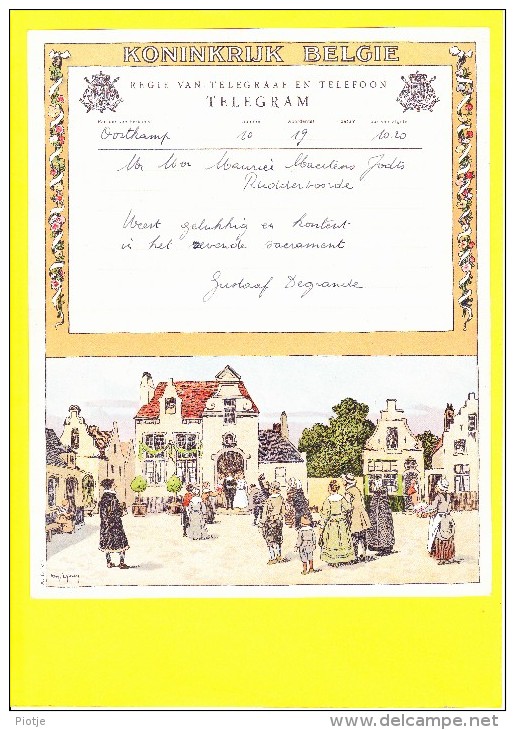 KONINKRIJK BELGIE
REGIE VAN TELEGRAAF EN TELEFOON
TELEGRAM
Oostkamp 10 19 10.20
Mr Mme Maurice Maertens Jodts
Ruddervoorde
Weest gelukkig en kontent
in het zevende sacrament
Gustaaf Degrande
Piotje
http://www.delcampe.net